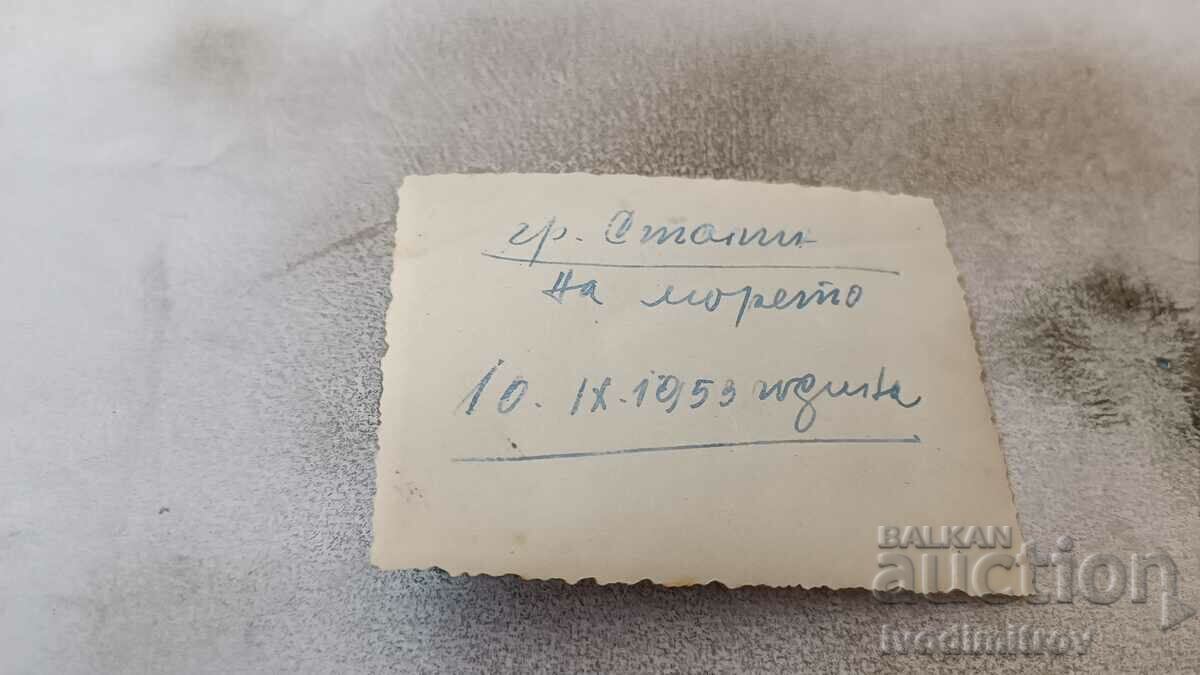 гр. Сталин
на морето
10. IX. 1953 година
BALKAN
auction
ivodimitrov